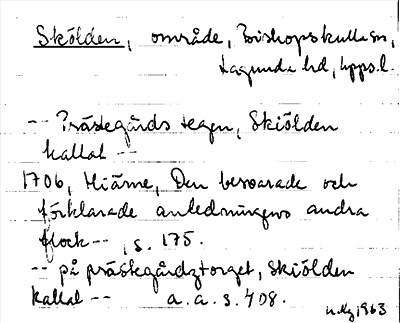 Skölden, område, Biskopskulla sn,
Lagunda hd, Upps. l.
-- Prästegårds tegen, Skiölden
kallat --
1706, Hiärne, Den beswarade och
förklarade anledningens andra
flock -- , s. 175.
-- på prästegårdztorget, Skiölden
kallat -- a. a. s. 408.
1963